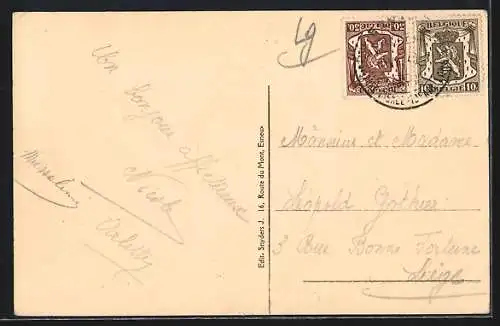 Un bonjour affectueux
Nicole
Arlette
Edit. Snyders J. 16, Route du Mont, Esneux
BELGIQUE
10 BELGIE 10
Monsieur et Madame
Léopold
3 Rue Bonne Fortune
Liège